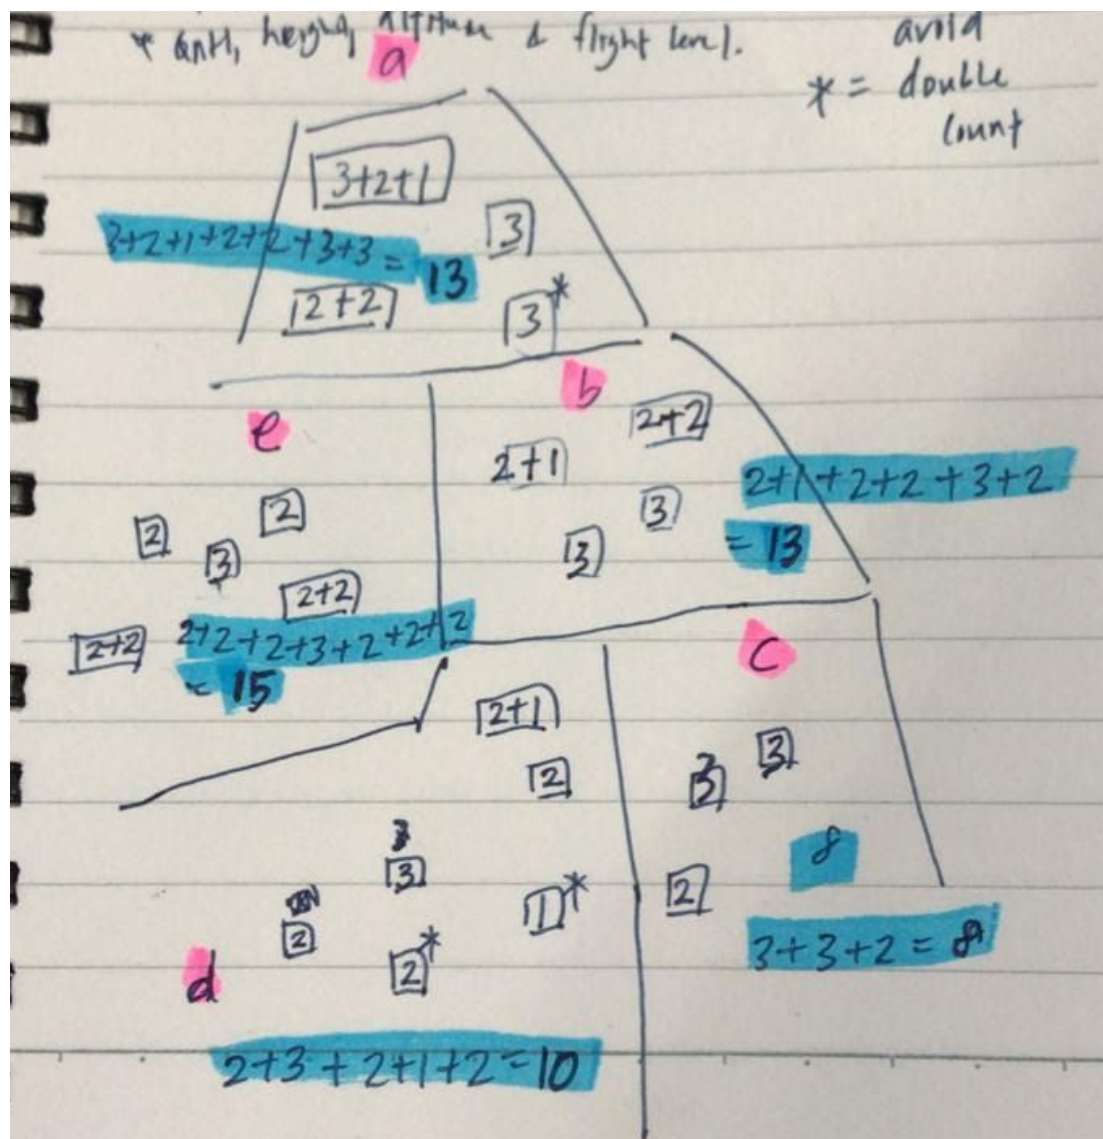 * QNH, height, altitude & flight level.
avoid
* = double
count
a
3+2+1
3
3+2+1+2+2+3+3 = 13
2+2
3*
b
e
2+2
2+1
2+1+2+2+3+2
2
3
2
3
3
= 13
2+2
2+2
2+2+2+3+2+2+2
= 15
c
2+1
3
2
3
8
3
2
1*
2
2*
3+3+2 = 8
d
2+3+2+1+2=10